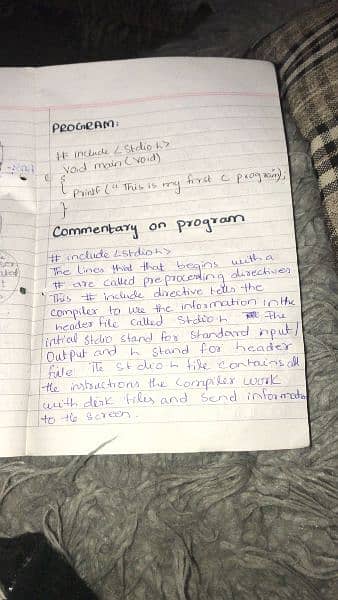 PROGRAM:
# include <Stdio h>
Void main (void)
{
Printf (" This is my first C program);
}
Commentary on program
# include <stdio h>
The lines that begins with a
# are called preproceeding directives
This # include directive tells the
compiler to use the information in the
header file called Stdio h The
intial Stdio stand for standard input/
Output and h stand for header
file The stdio h file contains all
the instructions the compiler work
with disk files and Send information
to the screen.